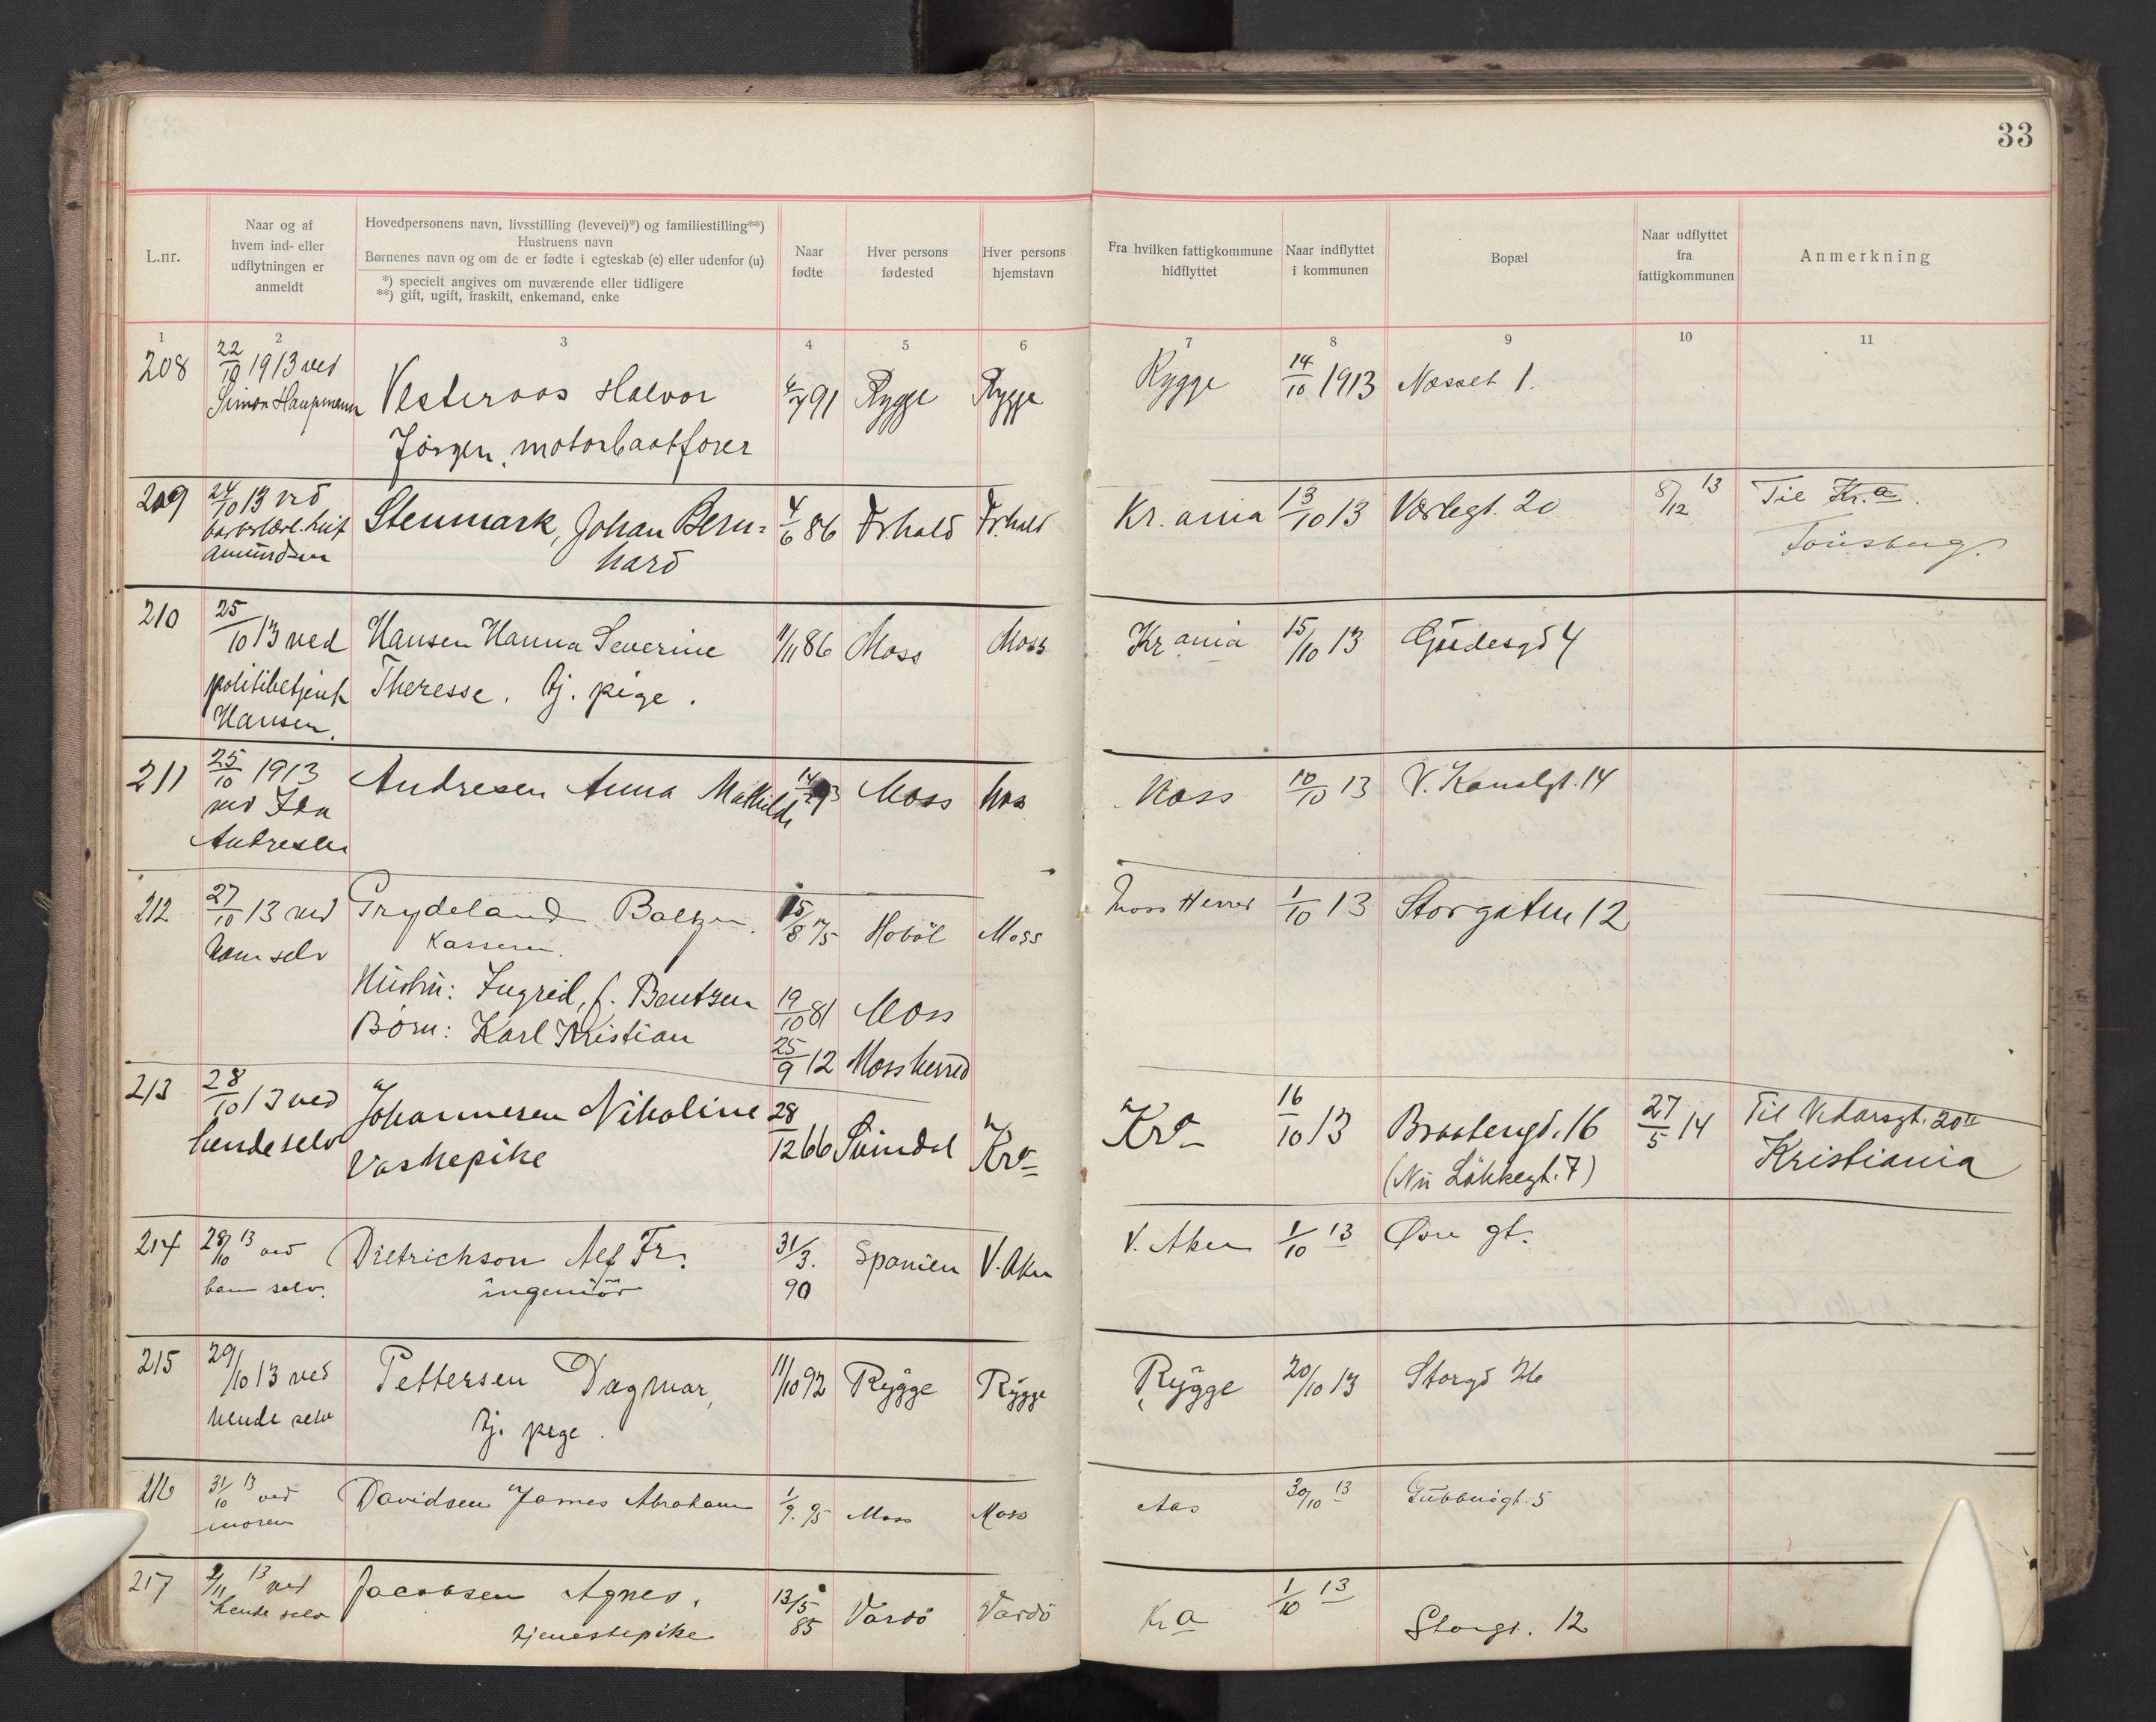 33
L.nr.
Naar og af
hvem ind- eller
udflytningen er
anmeldt
Hovedpersonens navn, livsstilling (levevei)*) og familiestilling**)
Hustruens navn
Børnenes navn og om de er fødte i egteskab (e) eller udenfor (u)
*) specielt angives om nuværende eller tidligere
**) gift, ugift, fraskilt, enkemand, enke
Naar
fødte
Hver persons
fødested
Hver persons
hjemstavn
Fra hvilken fattigkommune
hidflyttet
Naar indflyttet
i kommunen
Bopæl
Naar udflyttet
fra
fattigkommunen
Anmerkning
1 2 3 4 5 6 7 8 9 10 11
208 22/10 1913 ved Vesteraas Halvor 91 Rygge Rygge Rygge 14/10 1913 Næsset 1.
Simon
Jörgen, motorbaatförer
209 24/10 13 ved Stenmark, Johan Bern= 4/6 86 Fr.hald Fr.hald Kr.ania 13/10 13 Værlegt. 20 8/12 13 Til Kr.a.
Amundsen hard Tönsberg.
210 25/10 13 ved Hansen Hanna Severine 1/11 86 Moss Moss Kr ania 15/10 13 4
politibetjent Theresse. tj. pige.
Hansen.
211 25/10 1913 Andresen Anna Mathilde 14 Moss Mos Moss 10/10 13 V. Kanalgt. 14
ved
Andresen
212 27/10 13 ved Grydeland 15/8 75 Hobøl Moss Moss Herred 1/10 13 Storgaten 12
ham selv Kasserer.
Hustru: Ingrid, f. Bentzen 19/10 81 Moss
Børn: Karl Kristian 25/9 12 Moss herred
213 28/10 13 ved Johannesen Nikoline 28/12 66 Svindal Kra Kra 16/10 13 Braatengd. 16 27/5 14 Til Vidarsgt. 20 II
hende selv Vaskepike (Nu Lökkegt. 7) Kristiania
214 28/10 13 ved Dietrichson Alf Fr. 31/3. 90 Spanien V. Aker V. Aker 1/10 13 Øvre gt.
ham selv. ingeniör
215 29/10 13 ved Pettersen Dagmar, 11/10 92 Rygge Rygge Rygge 20/10 13 Storgd 26
hende selv tj. pige.
216 31/10 13 ved Davidsen James Abraham 1/9. 95 Moss Moss Aas 30/10 13 Gubberögt. 5
moren
217 13 ved Jacobsen Agnes, 13/5 85 Vardö Vardö Kra 1/10 13 Storgt. 12
hende selv tjenestepike